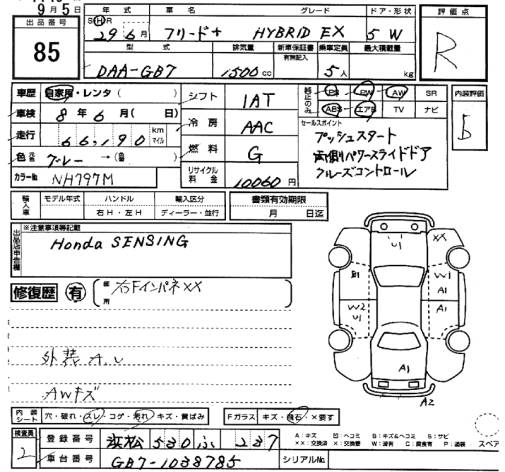 9月5日
出品番号
85
年式 車名 グレード ドア・形状
29年6月 フリード+ HYBRID EX 5W
型式 排気量 新車保証書 有無記入 乗車定員 最大積載量
DAA-GB7 1500cc 5人 kg
評価点
R
車歴 自家用・レンタ( )
車検 8年6月( 日)
走行 66,190 km マイル
色 グレー→( 色)
カラーNo NH797M
シフト 1AT
冷房 AAC
燃料 G
リサイクル料金 10060円
PS PW AW SR
ABS エアB TV ナビ
セールスポイント
プッシュスタート
両側パワースライドドア
クルーズコントロール
内装評価
輸入車 モデル年式 ハンドル 輸入区分
右H・左H ディーラー・並行
書類有効期限
月 日迄
※注意事項等記載
Honda SENSING
修復歴 有
箇所
右FインパネXX
外装A.U
AWキズ
XX
U1
B1
W1
A1
W2
U1
A1
A1
A2
内装シート 穴・破れ・スレ・コゲ・汚れ・キズ・黄ばみ
Fガラス キズ・飛石・×要す
検査員
2
登録番号 浜松 530 ふ 237
車台番号 GB7-1038785
シリアルNo.
A:キズ U:ヘコミ B:キズ&ヘコミ S:サビ
××:交換済 X:交換要 W:波有 C:腐食有 P:塗装
スペア